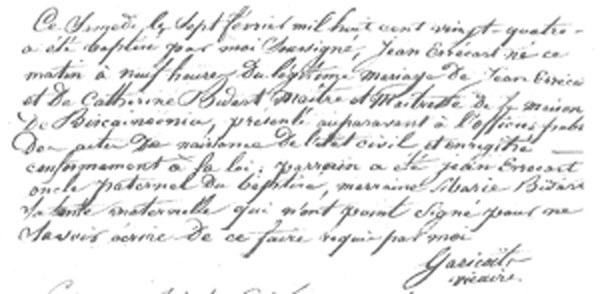 Ce Samedi le Sept février mil huit cent vingt-quatre
a été baptisé par moi Soussigné, Jean Errecart né ce
matin à neuf heures du légitime mariage de Jean Erreca
et de Catherine Bidart Maître et Maitresse de la maison
de présenté auparavant à l'officier publi
des actes de naissance de l'état civil et enregistré
conformément à la loi; parrain a été jean Errecart
oncle paternel du baptisé, marraine Marie Bidart
Sa tante maternelle qui n'ont point signé pour ne
Savoir écrire de ce faire requis par moi
Garicoïts
vicaire.